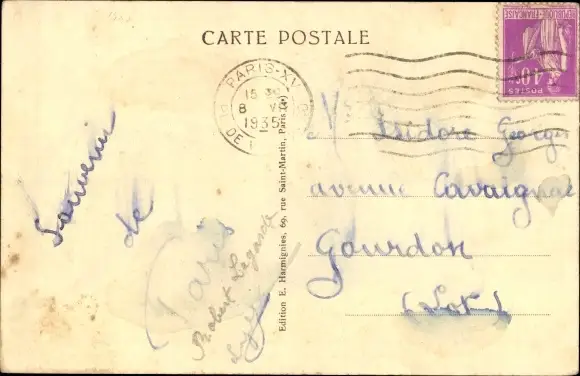 CARTE POSTALE
PARIS-XV
15 30
8 V
1935
POSTES
40c
REPUBLIQUE FRANÇAISE
Souvenir
de
Paris
Robert Lagarde
Edition E. Harmignies, 69, rue Saint-Martin, Paris (4e)
M Isidore Georges
avenue Cavaignac
Gourdon
(Lot)